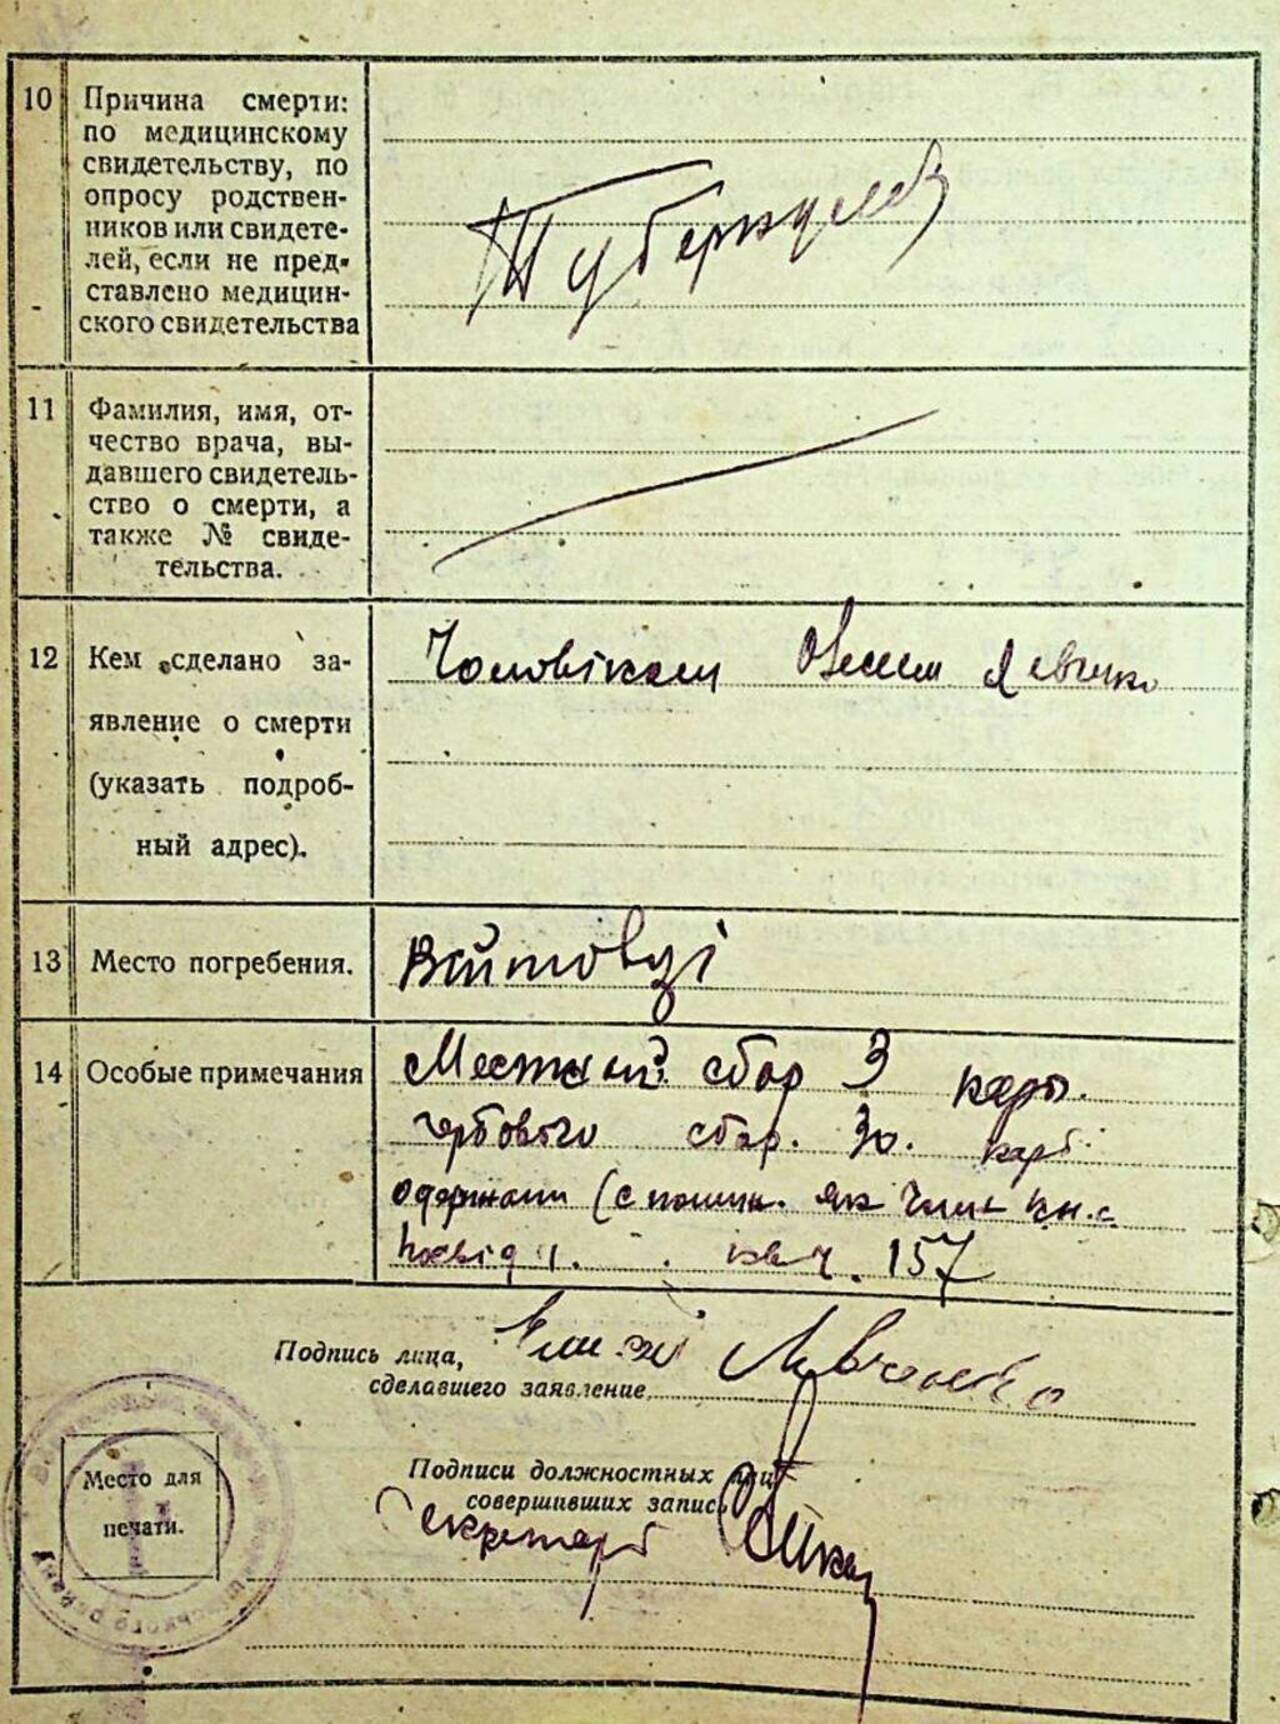 10 Причина смерти:
по медицинскому
свидетельству, по
опросу родствен-
ников или свидете-
лей, если не пред-
ставлено медицин-
ского свидетельства
Туберкулез
11 Фамилия, имя, от-
чество врача, вы-
давшего свидетель-
ство о смерти, а
также № свиде-
тельства.
12 Кем сделано за-
явление о смерти
(указать подроб-
ный адрес).
Чоловіком
13 Место погребения.
Війтовці
14 Особые примечания
Местний сбор 3 карб.
гербового сбор. 30. карб
одержали як член
квит. 157
Подпись лица,
сделавшего заявление
Левченко
Подписи должностных лиц
совершивших запись
Секретарь
Место для
печати.